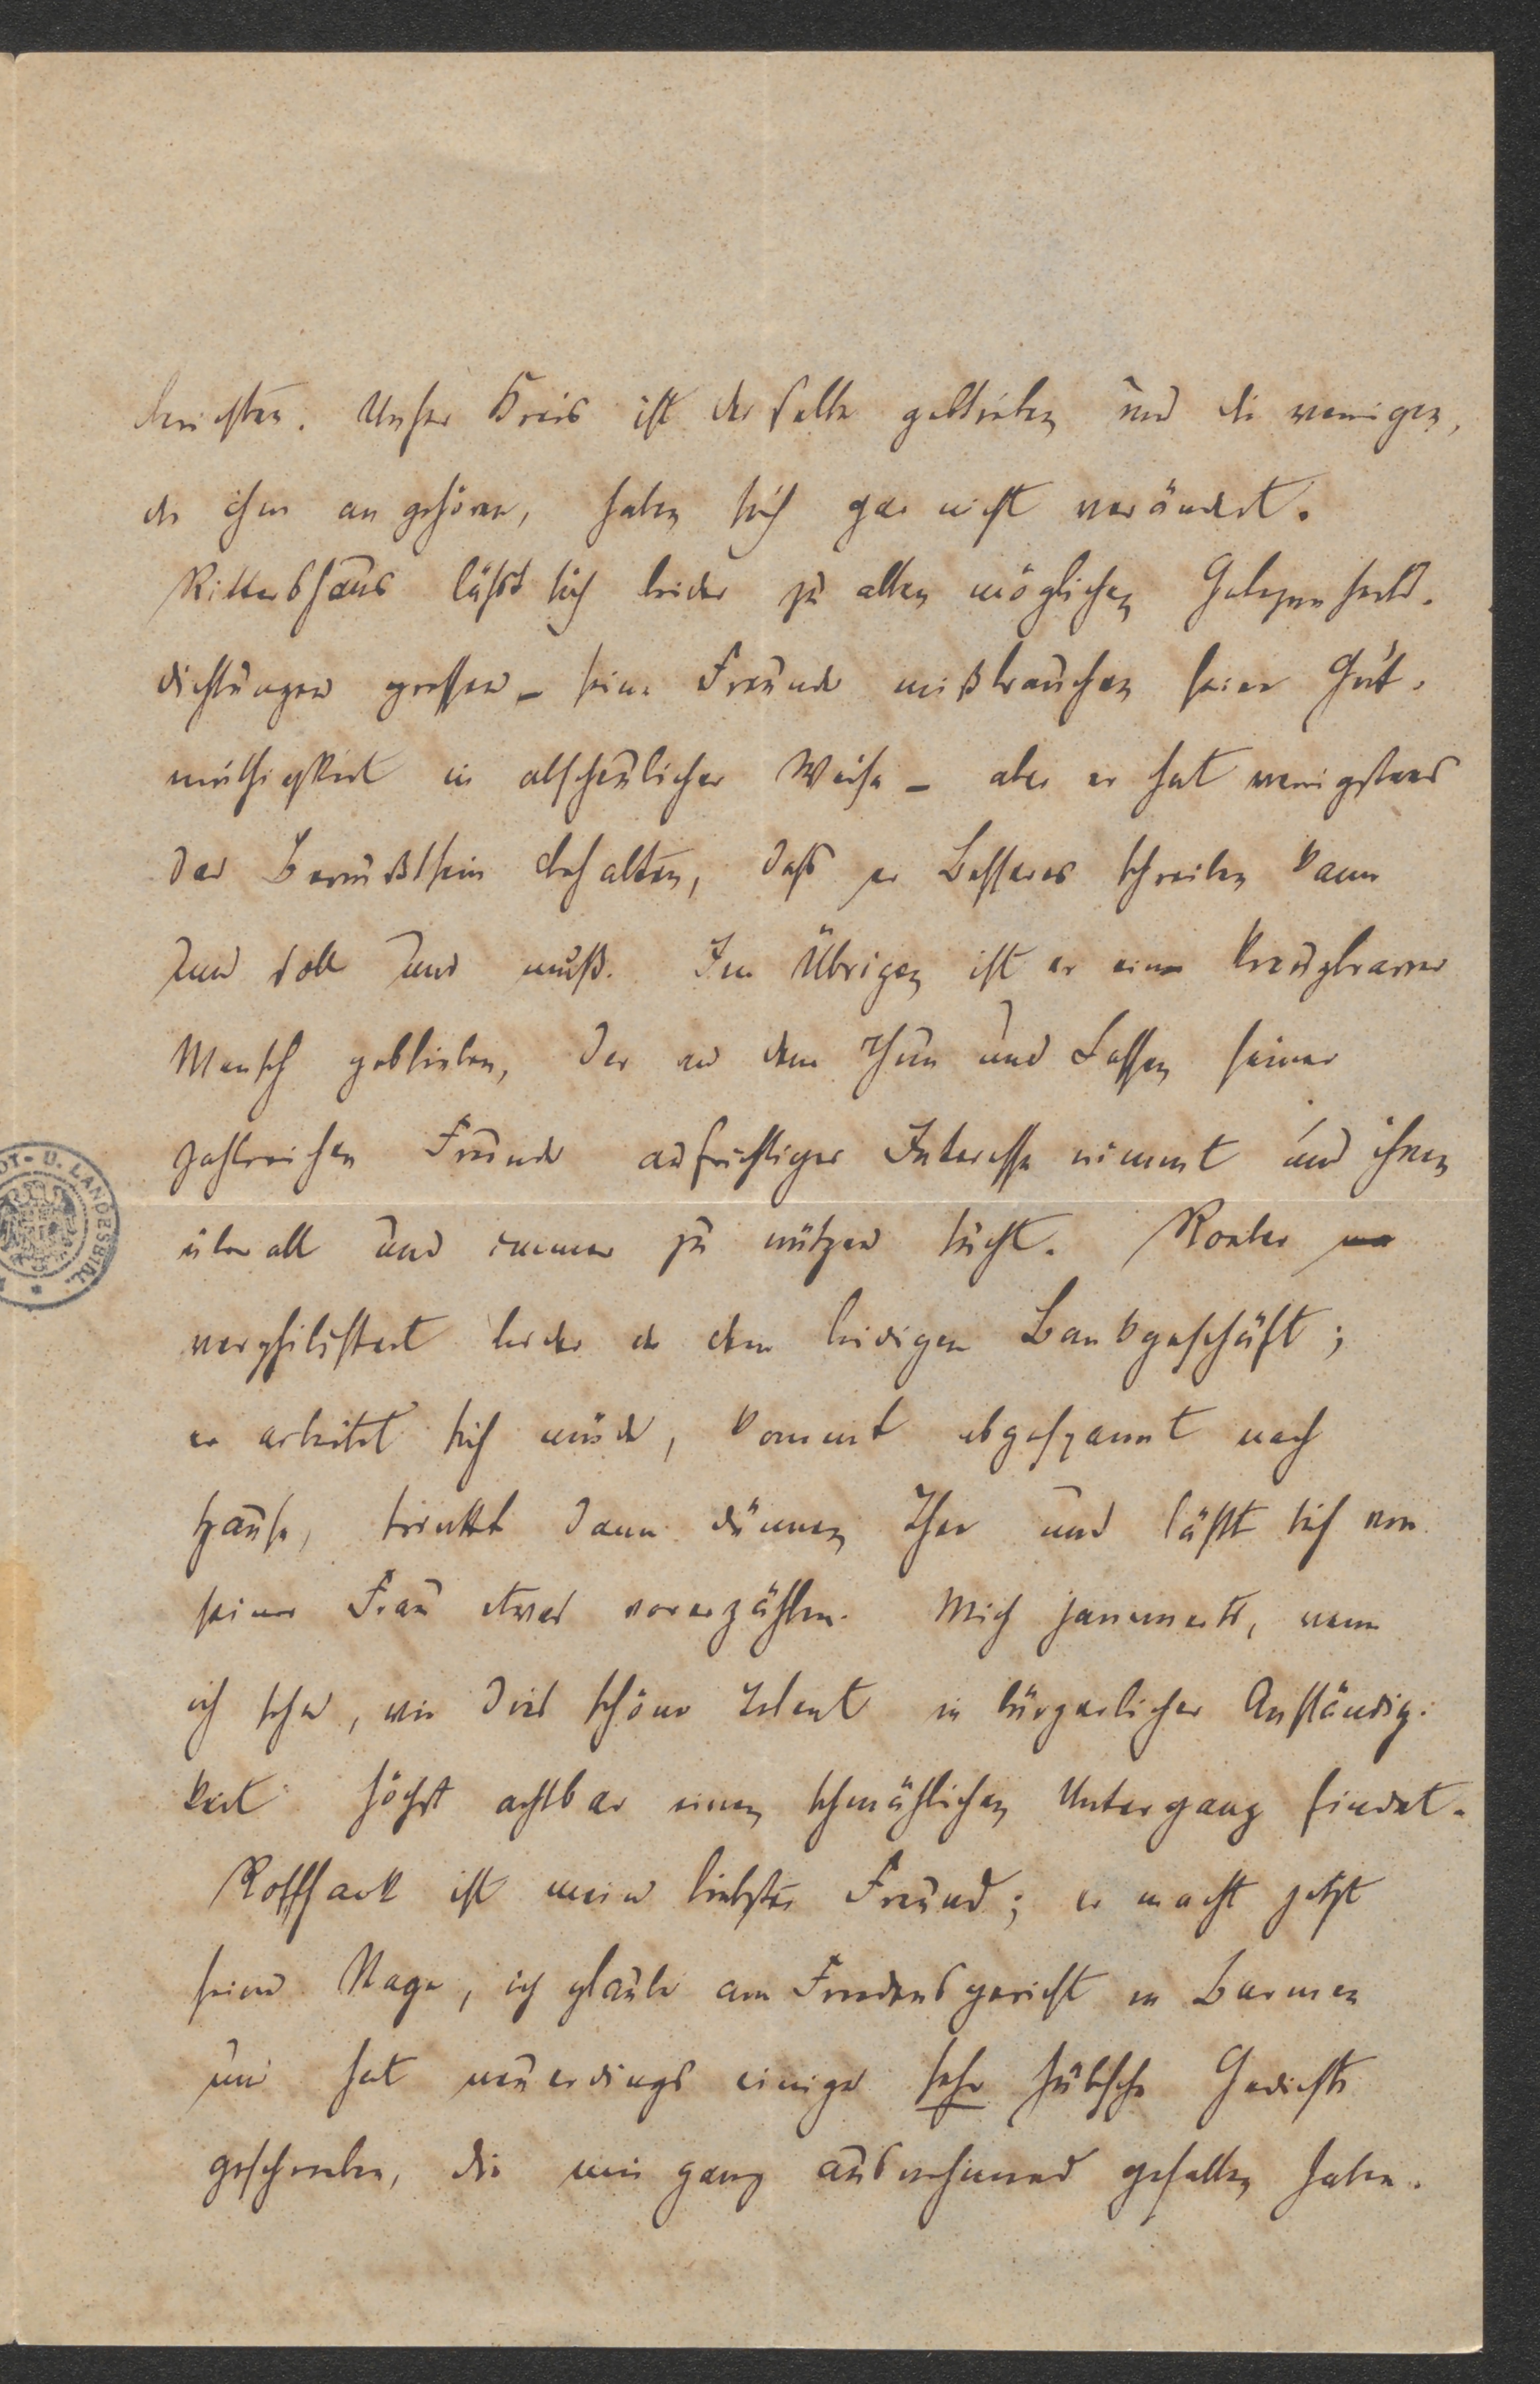 berichten. Unser Kreis ist derselbe geblieben und die wenigen,
die ihm angehören, haben sich gar nicht verändert.
Rittershaus läßt sich leider zu allen möglichen Gelegenheits-
dichtungen pressen – seine Freunde mißbrauchen seine Gut-
müthigkeit in abscheulicher Weise – aber er hat wenigstens
das Bewußtsein behalten, daß er Besseres schreiben kann
und soll und muß. Im Übrigen ist er ein kreuzbraver
Mensch geblieben, der an dem Thun und Lassen seiner
zahlreichen Freunde aufrichtiges Interesse nimmt und ihnen
überall und immer zu nützen sucht. Roeber
verphilistert leider in dem leidigen Bankgeschäft;
er arbeitet sich müde, kommt abgespannt nach
Hause, trinkt dann dünnen Thee und läßt sich von
seiner Frau etwas vorerzählen. Mich jammerts, wenn
ich sehe, wie dies schöne Talent in bürgerlicher Anständig-
keit höchst achtbar einen schmählichen Untergang findet.
Roffhack ist mein liebster Freund; er macht jetzt
seine Stage, ich glaube am Friedensgericht in Barmen
und hat neuerdings einige sehr hübsche Gedichte
geschrieben, die mir ganz ausnehmend gefallen haben.
DT- U. LANDESBIBL.